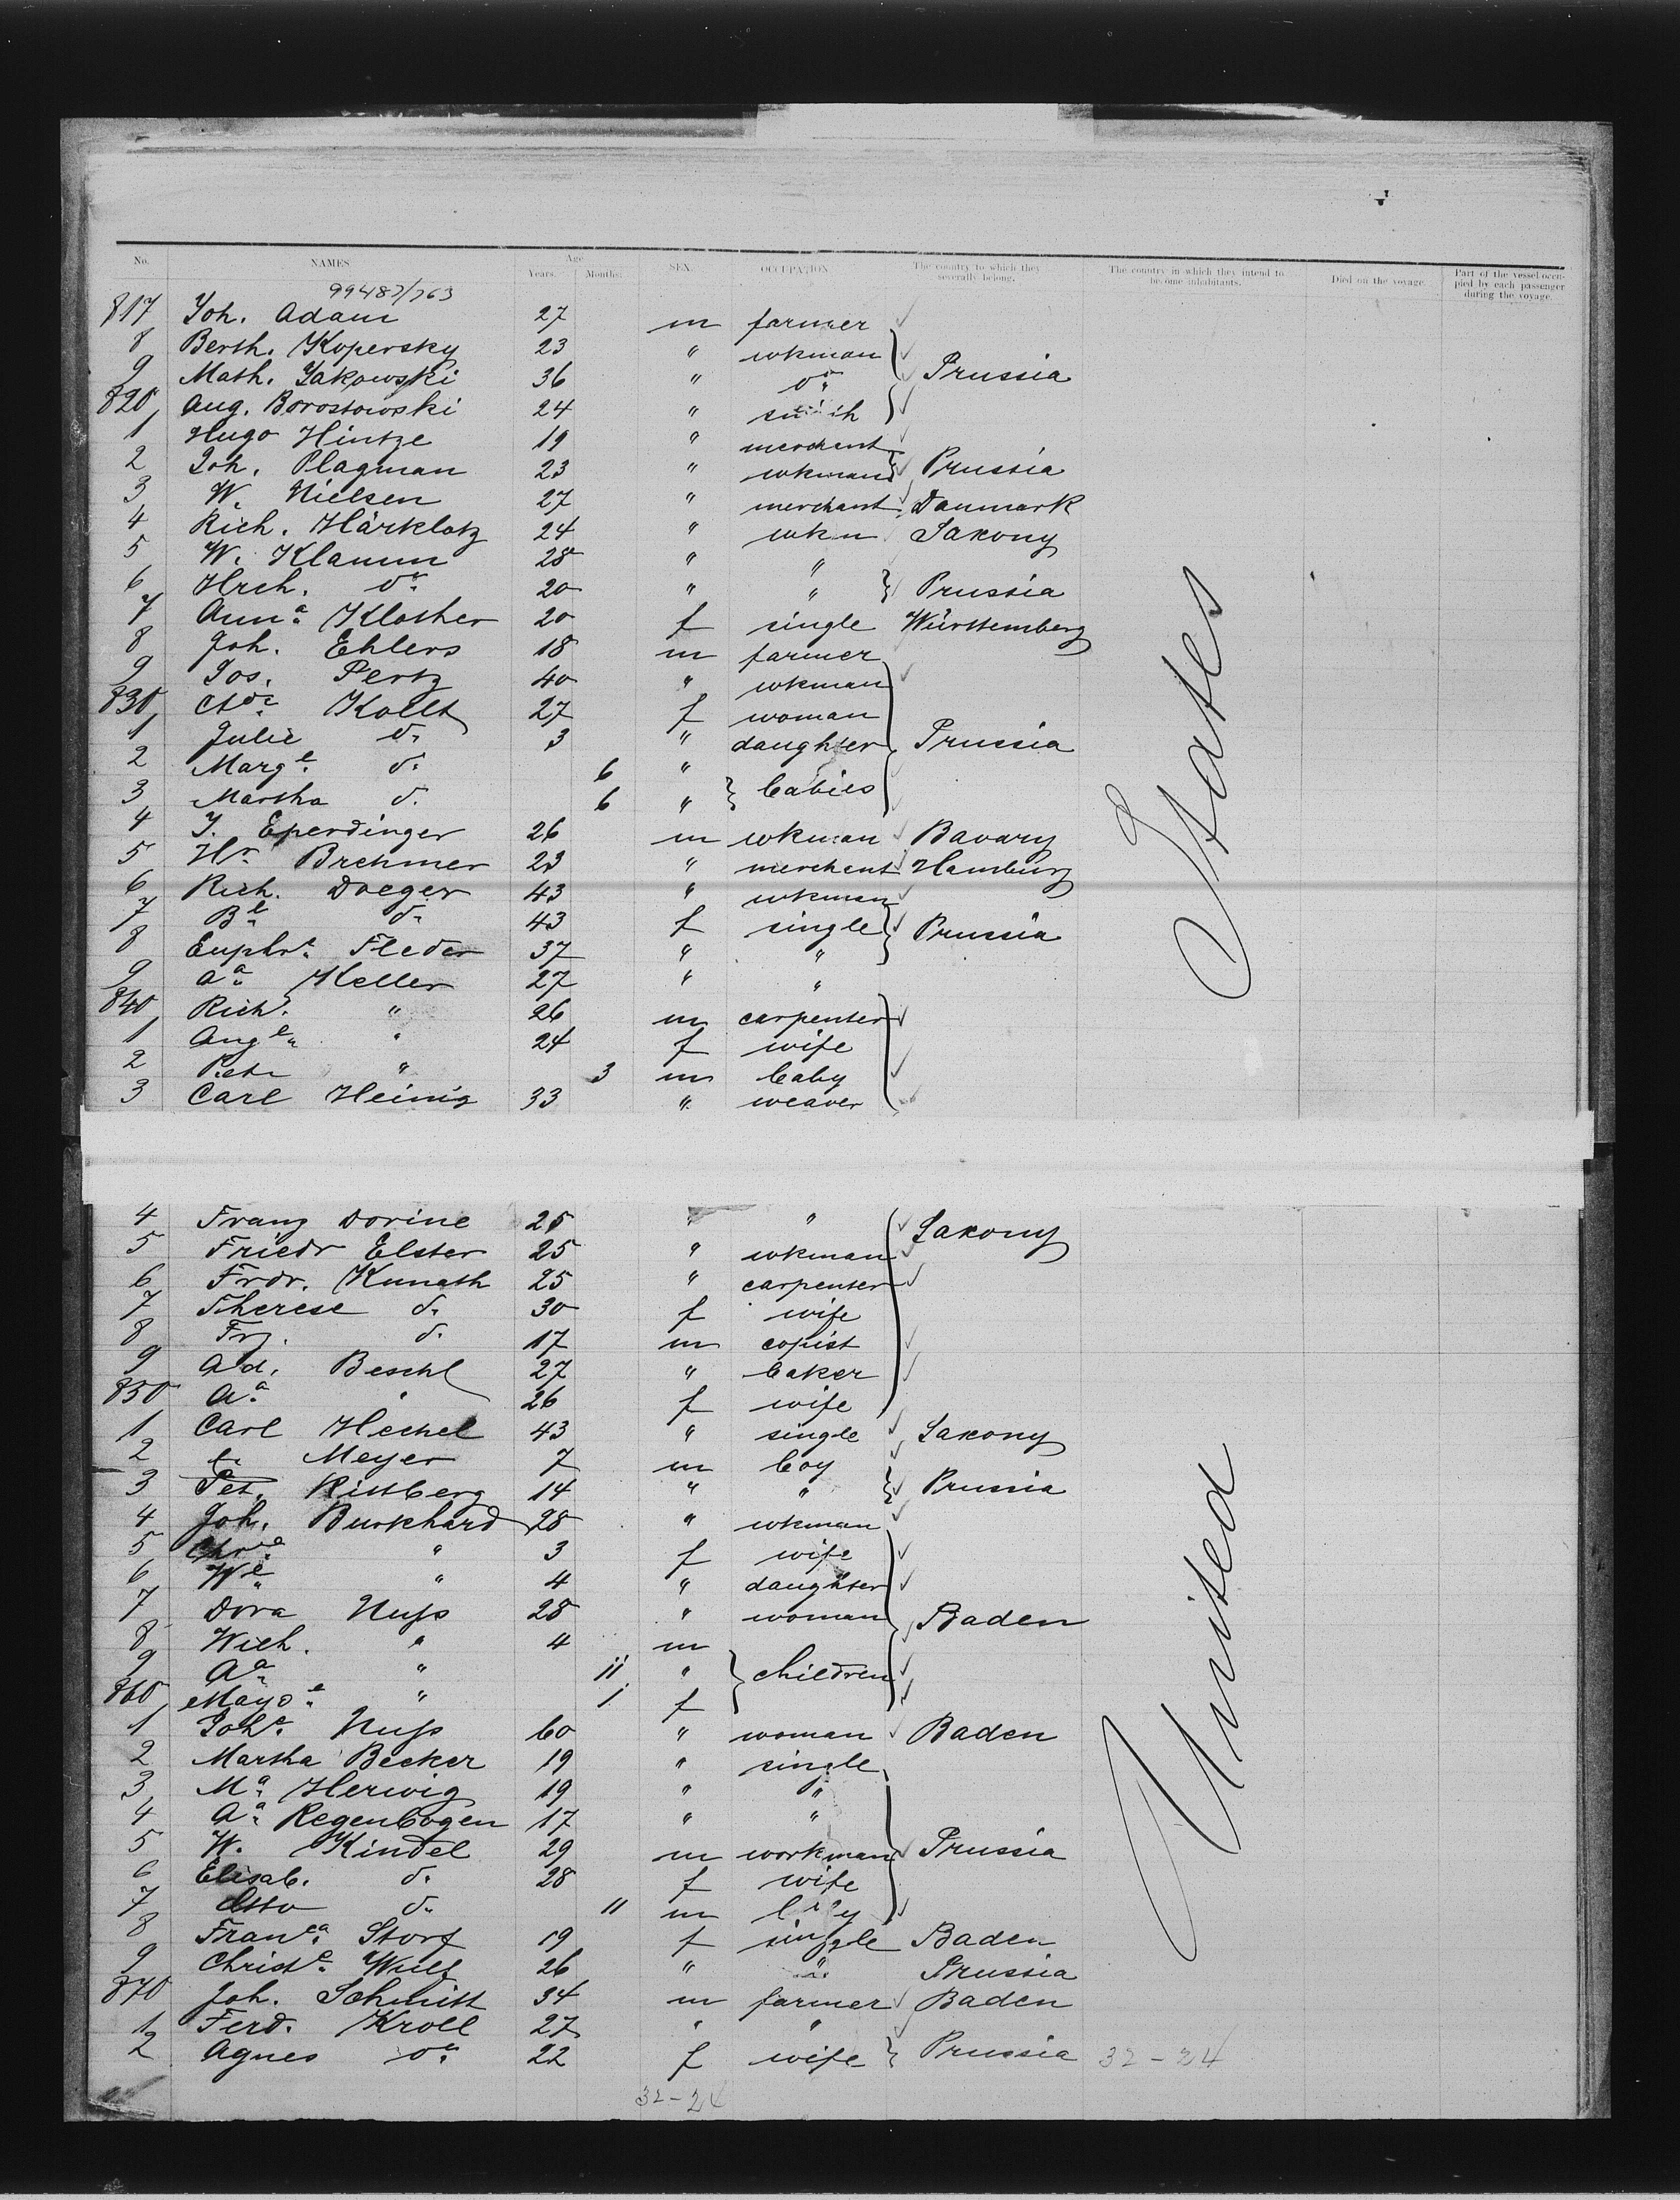 No. NAMES Age Years. Months. SEX. OCCUPATION The country to which they severally belong. The country in which they intend to become inhabitants. Died on the voyage. Part of the vessel occupied by each passenger during the voyage.
99487/763
817 Joh. Adam 27 m farmer
8 Berth. Kopersky 23 " wkman
9 Math. Jakowski 36 " do Prussia
820 Aug. Borostowski 24 " smith
1 Hugo Hintze 19 " merchant
2 Joh. Plagman 23 " wkman Prussia
3 W. Nielsen 27 " merchant Danmark
4 Rich. Härklotz 24 " wkn Saxony
5 W. Klamm 28 " "
6 Hrch. do 20 " " Prussia
7 Anna Klosher 20 f single Württemberg
8 Joh. Ehlers 18 m farmer
9 Jos. Pertz 40 " wkman
830 Kollt 27 f woman
1 Julie d. 3 " daughter Prussia
2 Marge d. 6 "
3 Martha d. 6 " babies
4 J. Eperdinger 26 m wkman Bavary
5 Hr. Brehmer 23 " merchant Hamburg
6 Rich. Doeger 43 " wkman
7 Be d. 43 f single Prussia
8 Euphr. Fleder 37 " "
9 Aa Keller 27 " "
840 Rich. " 26 m carpenter
1 Auge " 24 f wife
2 Petr " 3 m baby
3 Carl Heinig 33 " weaver
4 Franz Dorine 25 " " Saxony
5 Friedr Elster 25 " wkman
6 Frdr. Kunath 25 " carpenter
7 Therese d. 30 f wife
8 Frz. d. 17 m copist
9 Ad. Beschl 27 " baker
850 Aa " 26 f wife
1 Carl Hechel 43 " single Saxony
2 Meyer 7 m boy
3 Pet. Rittberg 14 " " Prussia
4 Joh. Burkhard 28 " wkman
5 Chrne " 3 f wife
6 We " 4 " daughter
7 Dora Nuss 28 " woman Baden
8 Wich. " 4 m
9 Aa " 11 " children
860 " 1 f
1 Johe Nuss 60 " woman Baden
2 Martha Becker 19 " single
3 Ma Herwig 19 " "
4 Aa Regenbogen 17 " "
5 W. Kindel 29 m workman Prussia
6 Elisab. d. 28 f wife
7 Otto d. 11 m
8 Franca Storf 19 f single Baden
9 Christe Wulf 26 " " Prussia
870 Joh. Schmitt 34 m farmer Baden
1 Ferd. Kroll 27 " "
2 Agnes do 22 f wife Prussia 32-24
32-24
United States